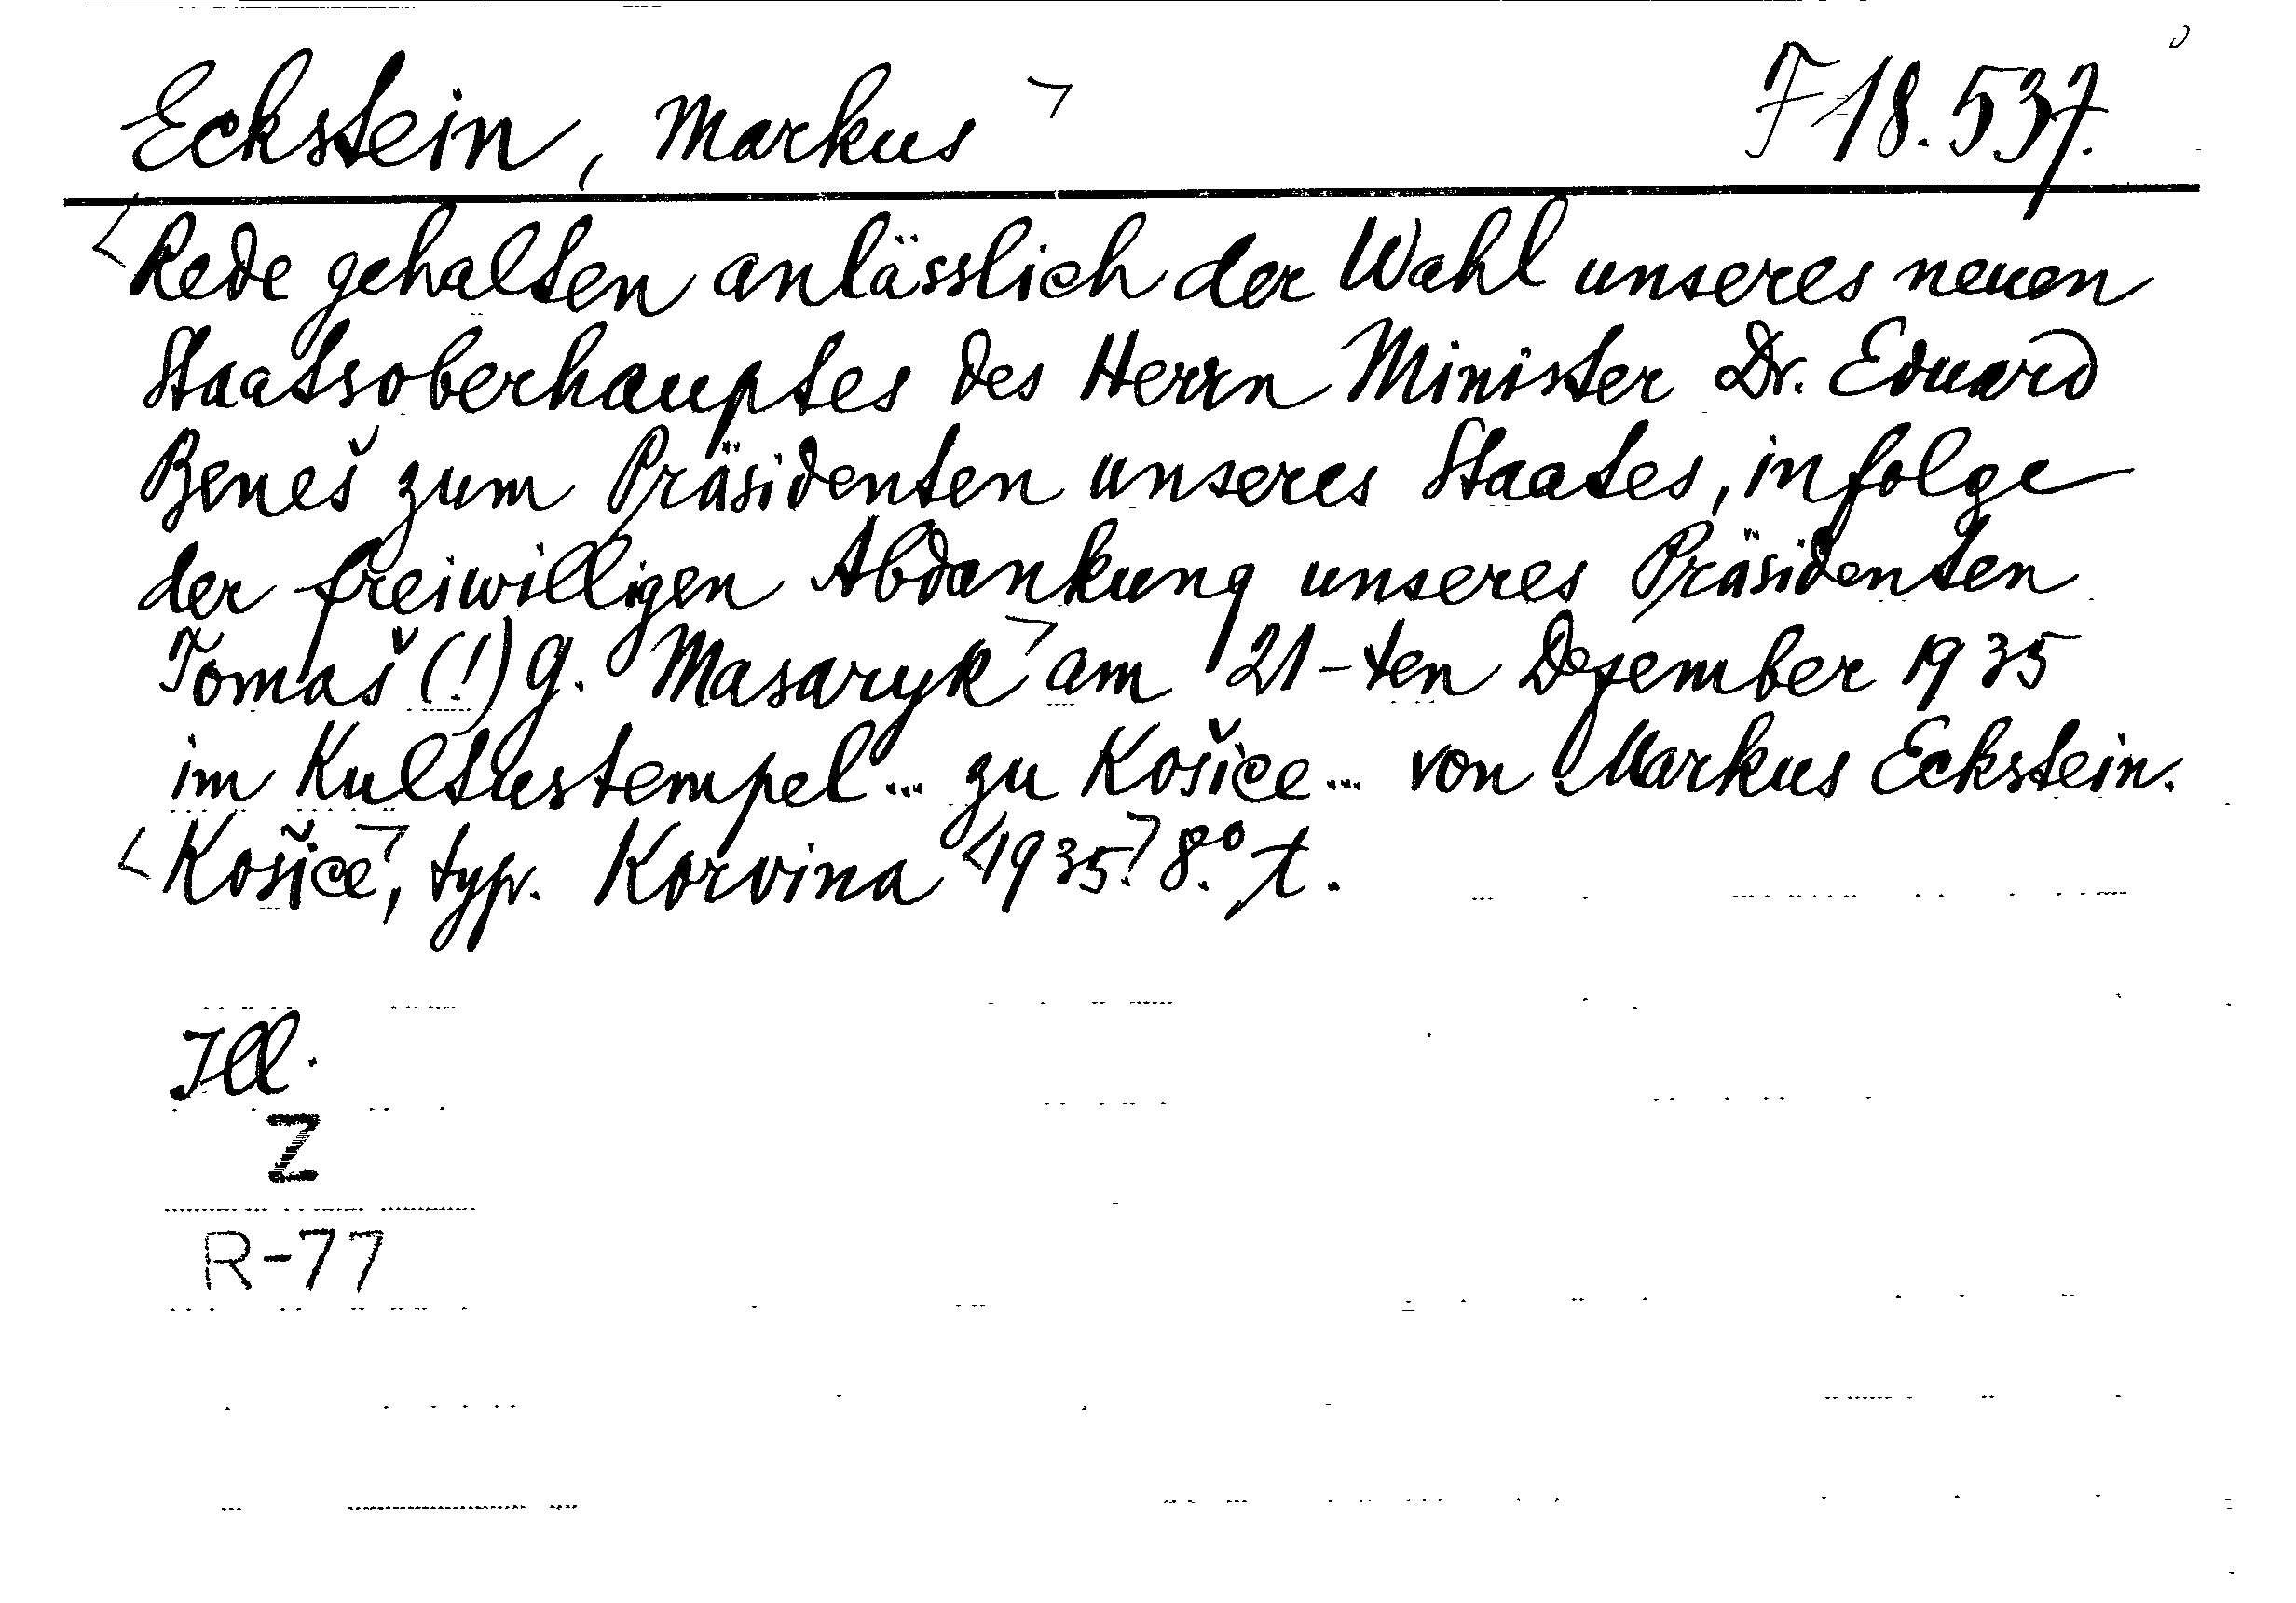 Eckstein, Markus ⌝ F 18.537.
<Rede gehalten anlässlich der Wahl unseres neuen
Staatsoberhauptes des Herrn Minister Dr. Eduard
Beneš zum Präsidenten unseres Staates, infolge
der freiwilligen Abdankung unseres Präsidenten
Tomaš (!) G. Masaryk⌝ am 21-ten Dezember 1935
im Kultustempel... zu Košice... von Markus Eckstein.
<Košice⌝, typ. Korvina <1935.⌝ 8.° t.
Ill.
Z
R-77